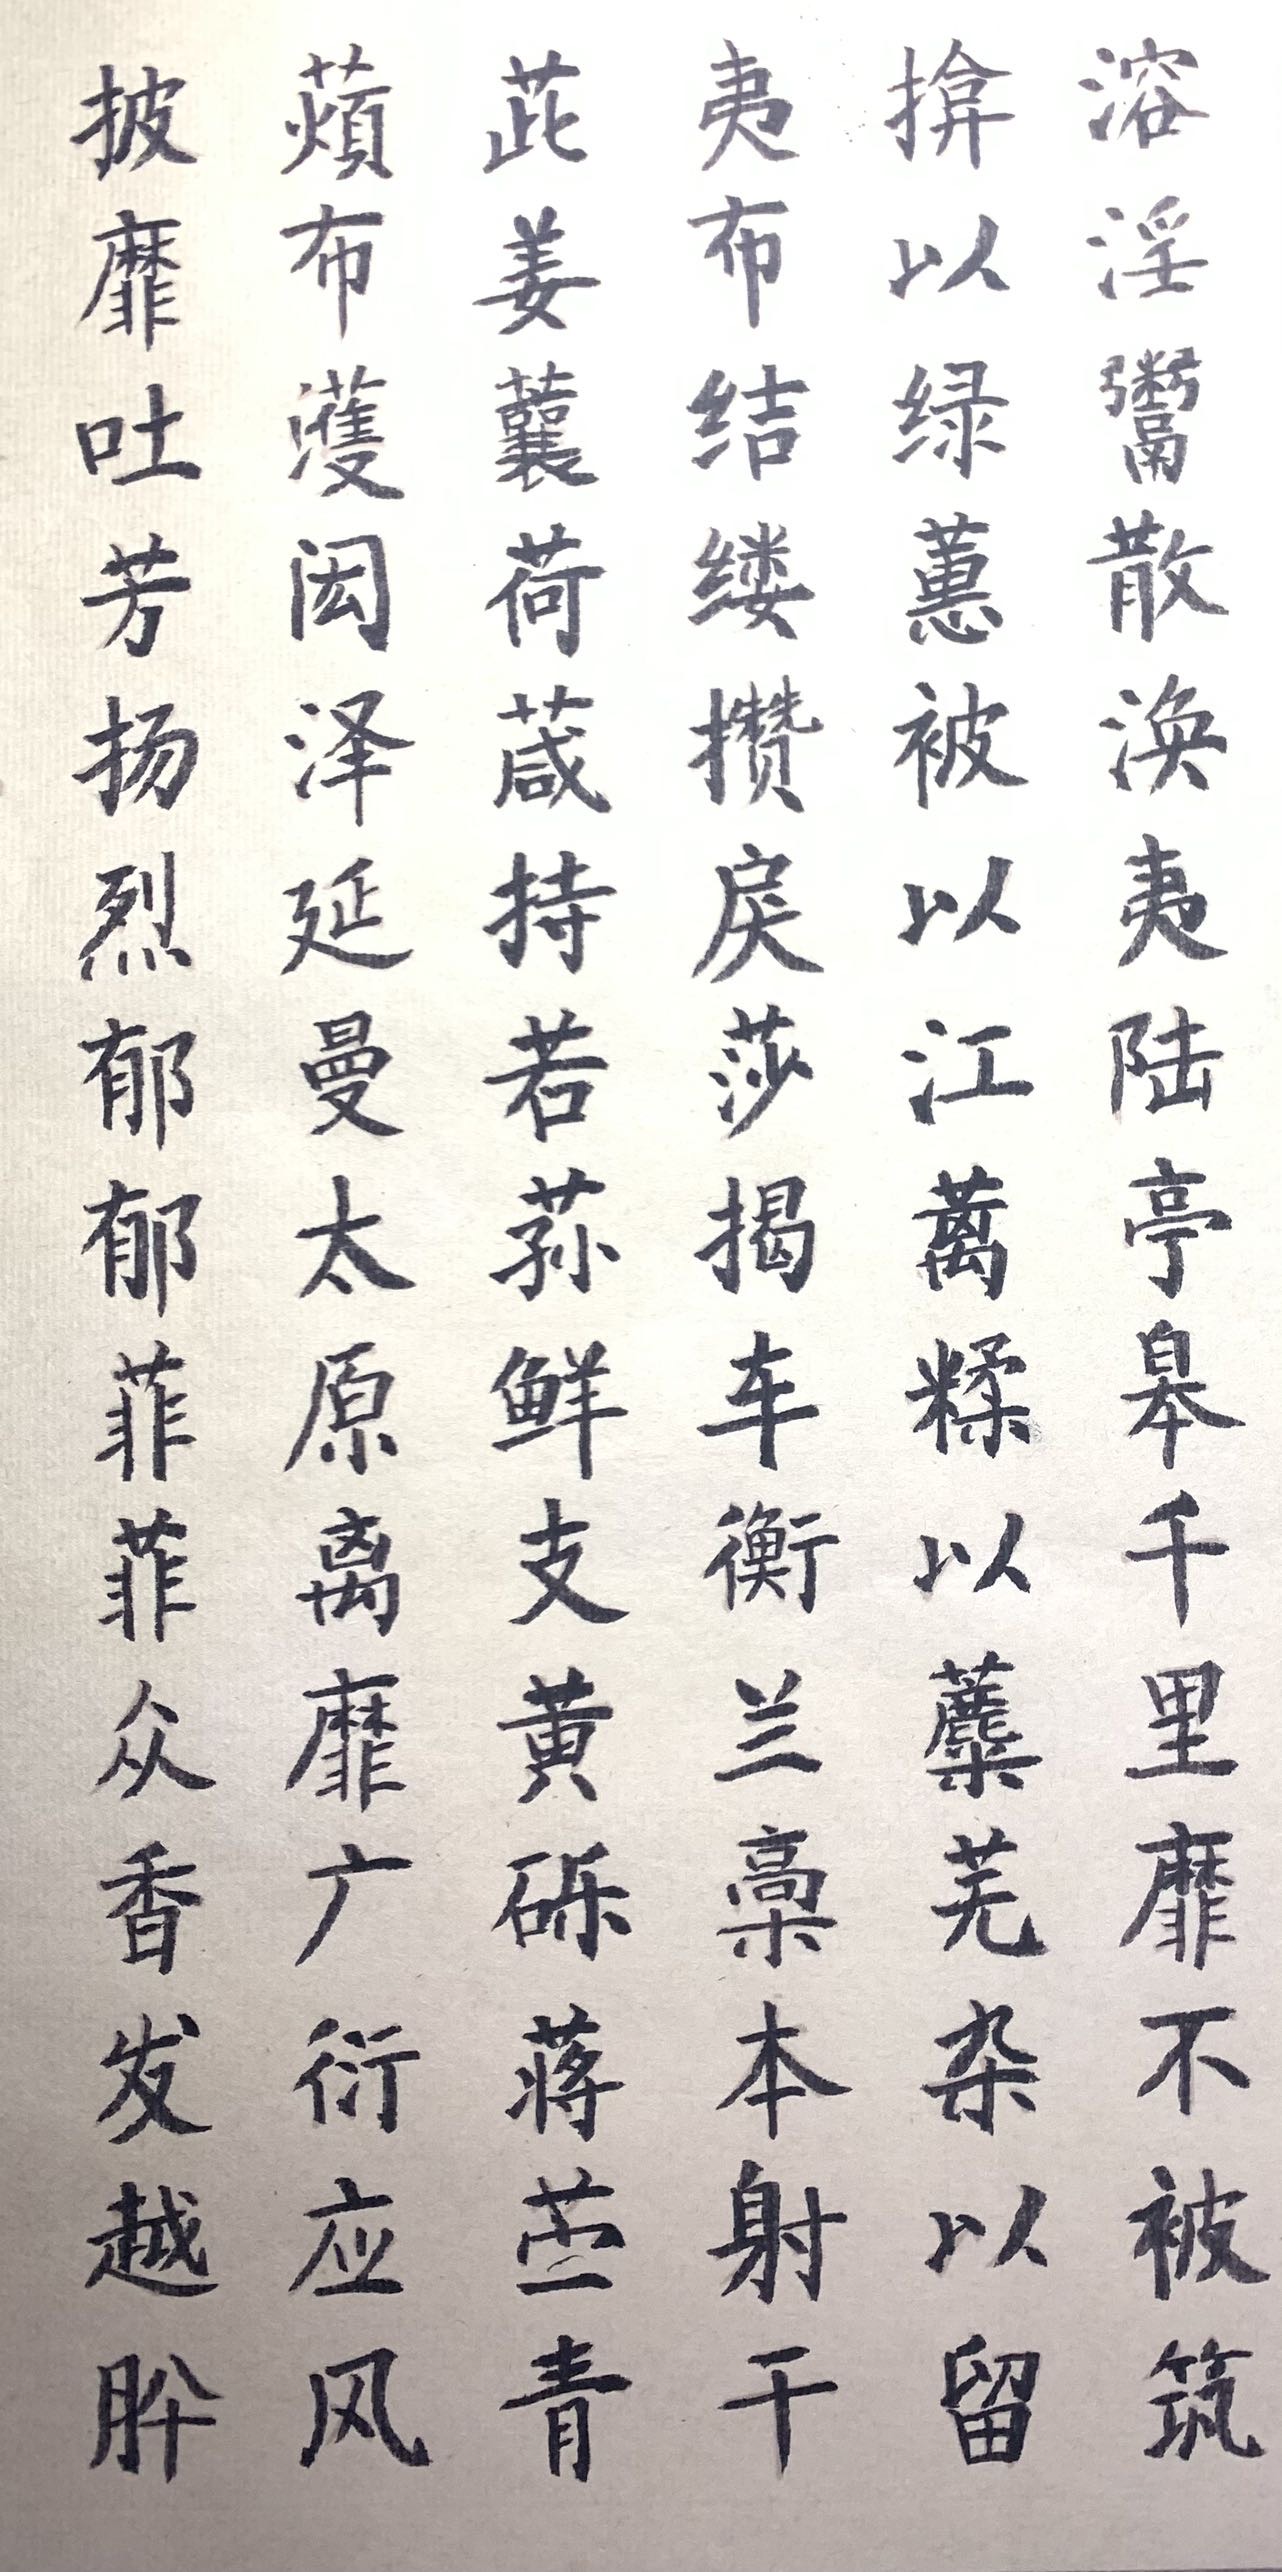 溶淫鬻散涣夷陆亭皋千里靡不被筑
揜以绿蕙被以江蓠糅以蘪芜杂以留
夷布结缕攒戾莎揭车衡兰稾本射干
茈姜蘘荷葴持若荪鲜支黄砾蒋苎青
薠布濩闳泽延曼太原离靡广衍应风
披靡吐芳扬烈郁郁菲菲众香发越肸